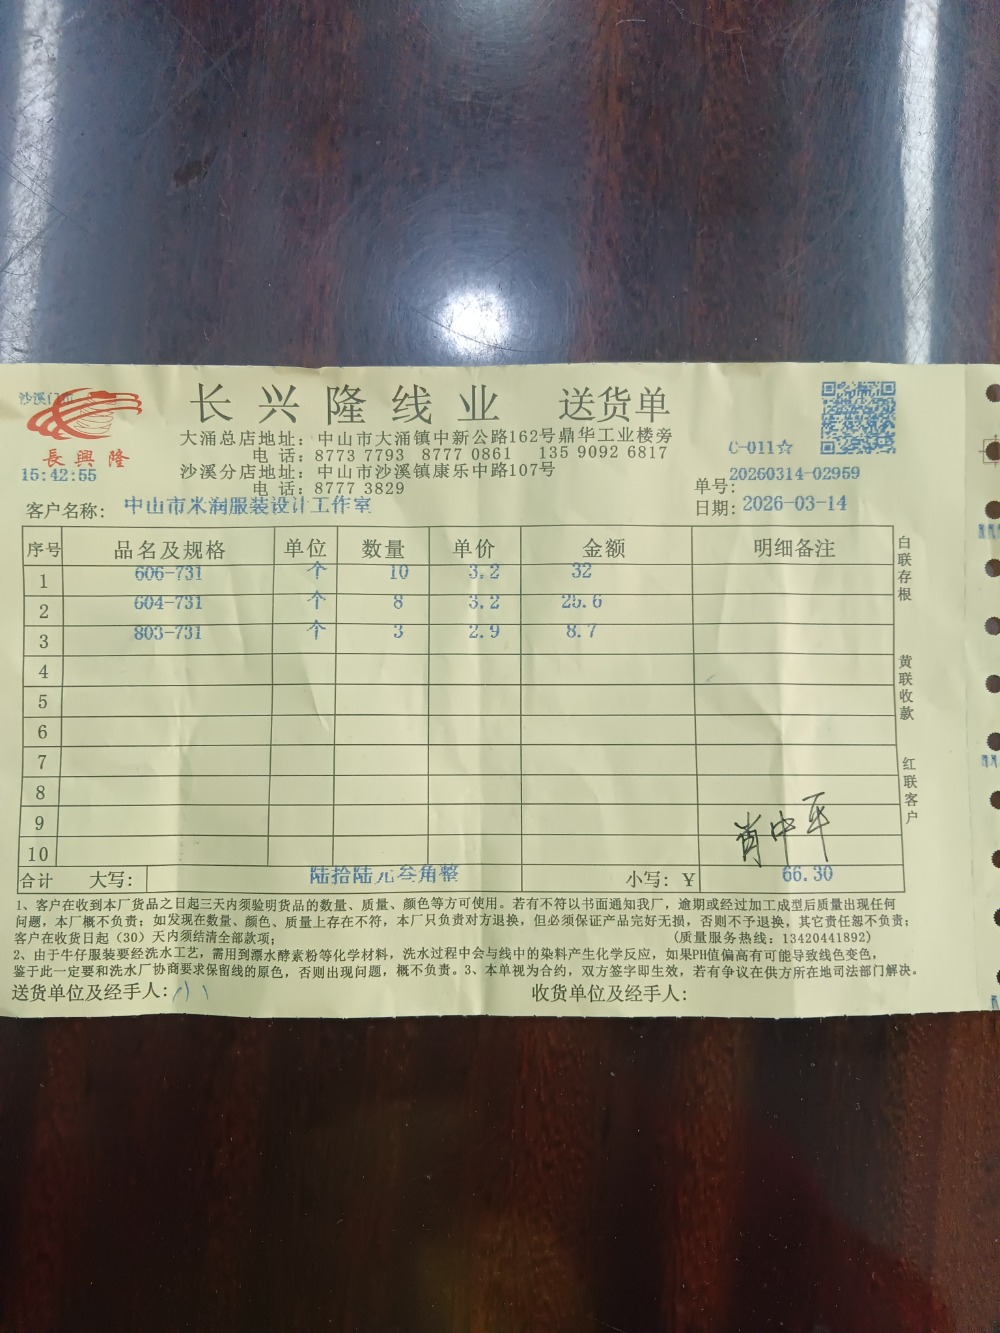 长兴隆线业 送货单
長興隆
15:42:55
大涌总店地址：中山市大涌镇中新公路162号鼎华工业楼旁
电 话：8773 7793 8777 0861 135 9092 6817
沙溪分店地址：中山市沙溪镇康乐中路107号
电 话：8777 3829
C-011☆
单号：20260314-02959
客户名称：中山市米润服装设计工作室
日期：2026-03-14
序号 品名及规格 单位 数量 单价 金额 明细备注
1 606-731 个 10 3.2 32
2 604-731 个 8 3.2 25.6
3 803-731 个 3 2.9 8.7
4
5
6
7
8
9
10
肖中平
合计 大写：陆拾陆元叁角整 小写：￥66.30
白联存根
黄联收款
红联客户
1、客户在收到本厂货品之日起三天内须验明货品的数量、质量、颜色等方可使用。若有不符以书面通知我厂，逾期或经过加工成型后质量出现任何
问题，本厂概不负责；如发现在数量、颜色、质量上存在不符，本厂只负责对方退换，但必须保证产品完好无损，否则不予退换，其它责任恕不负责；
客户在收货日起（30）天内须结清全部款项； （质量服务热线：13420441892）
2、由于牛仔服装要经洗水工艺，需用到漂水酵素粉等化学材料，洗水过程中会与线中的染料产生化学反应，如果PH值偏高有可能导致线色变色，
鉴于此一定要和洗水厂协商要求保留线的原色，否则出现问题，概不负责。3、本单视为合约，双方签字即生效，若有争议在供方所在地司法部门解决。
送货单位及经手人： 收货单位及经手人：